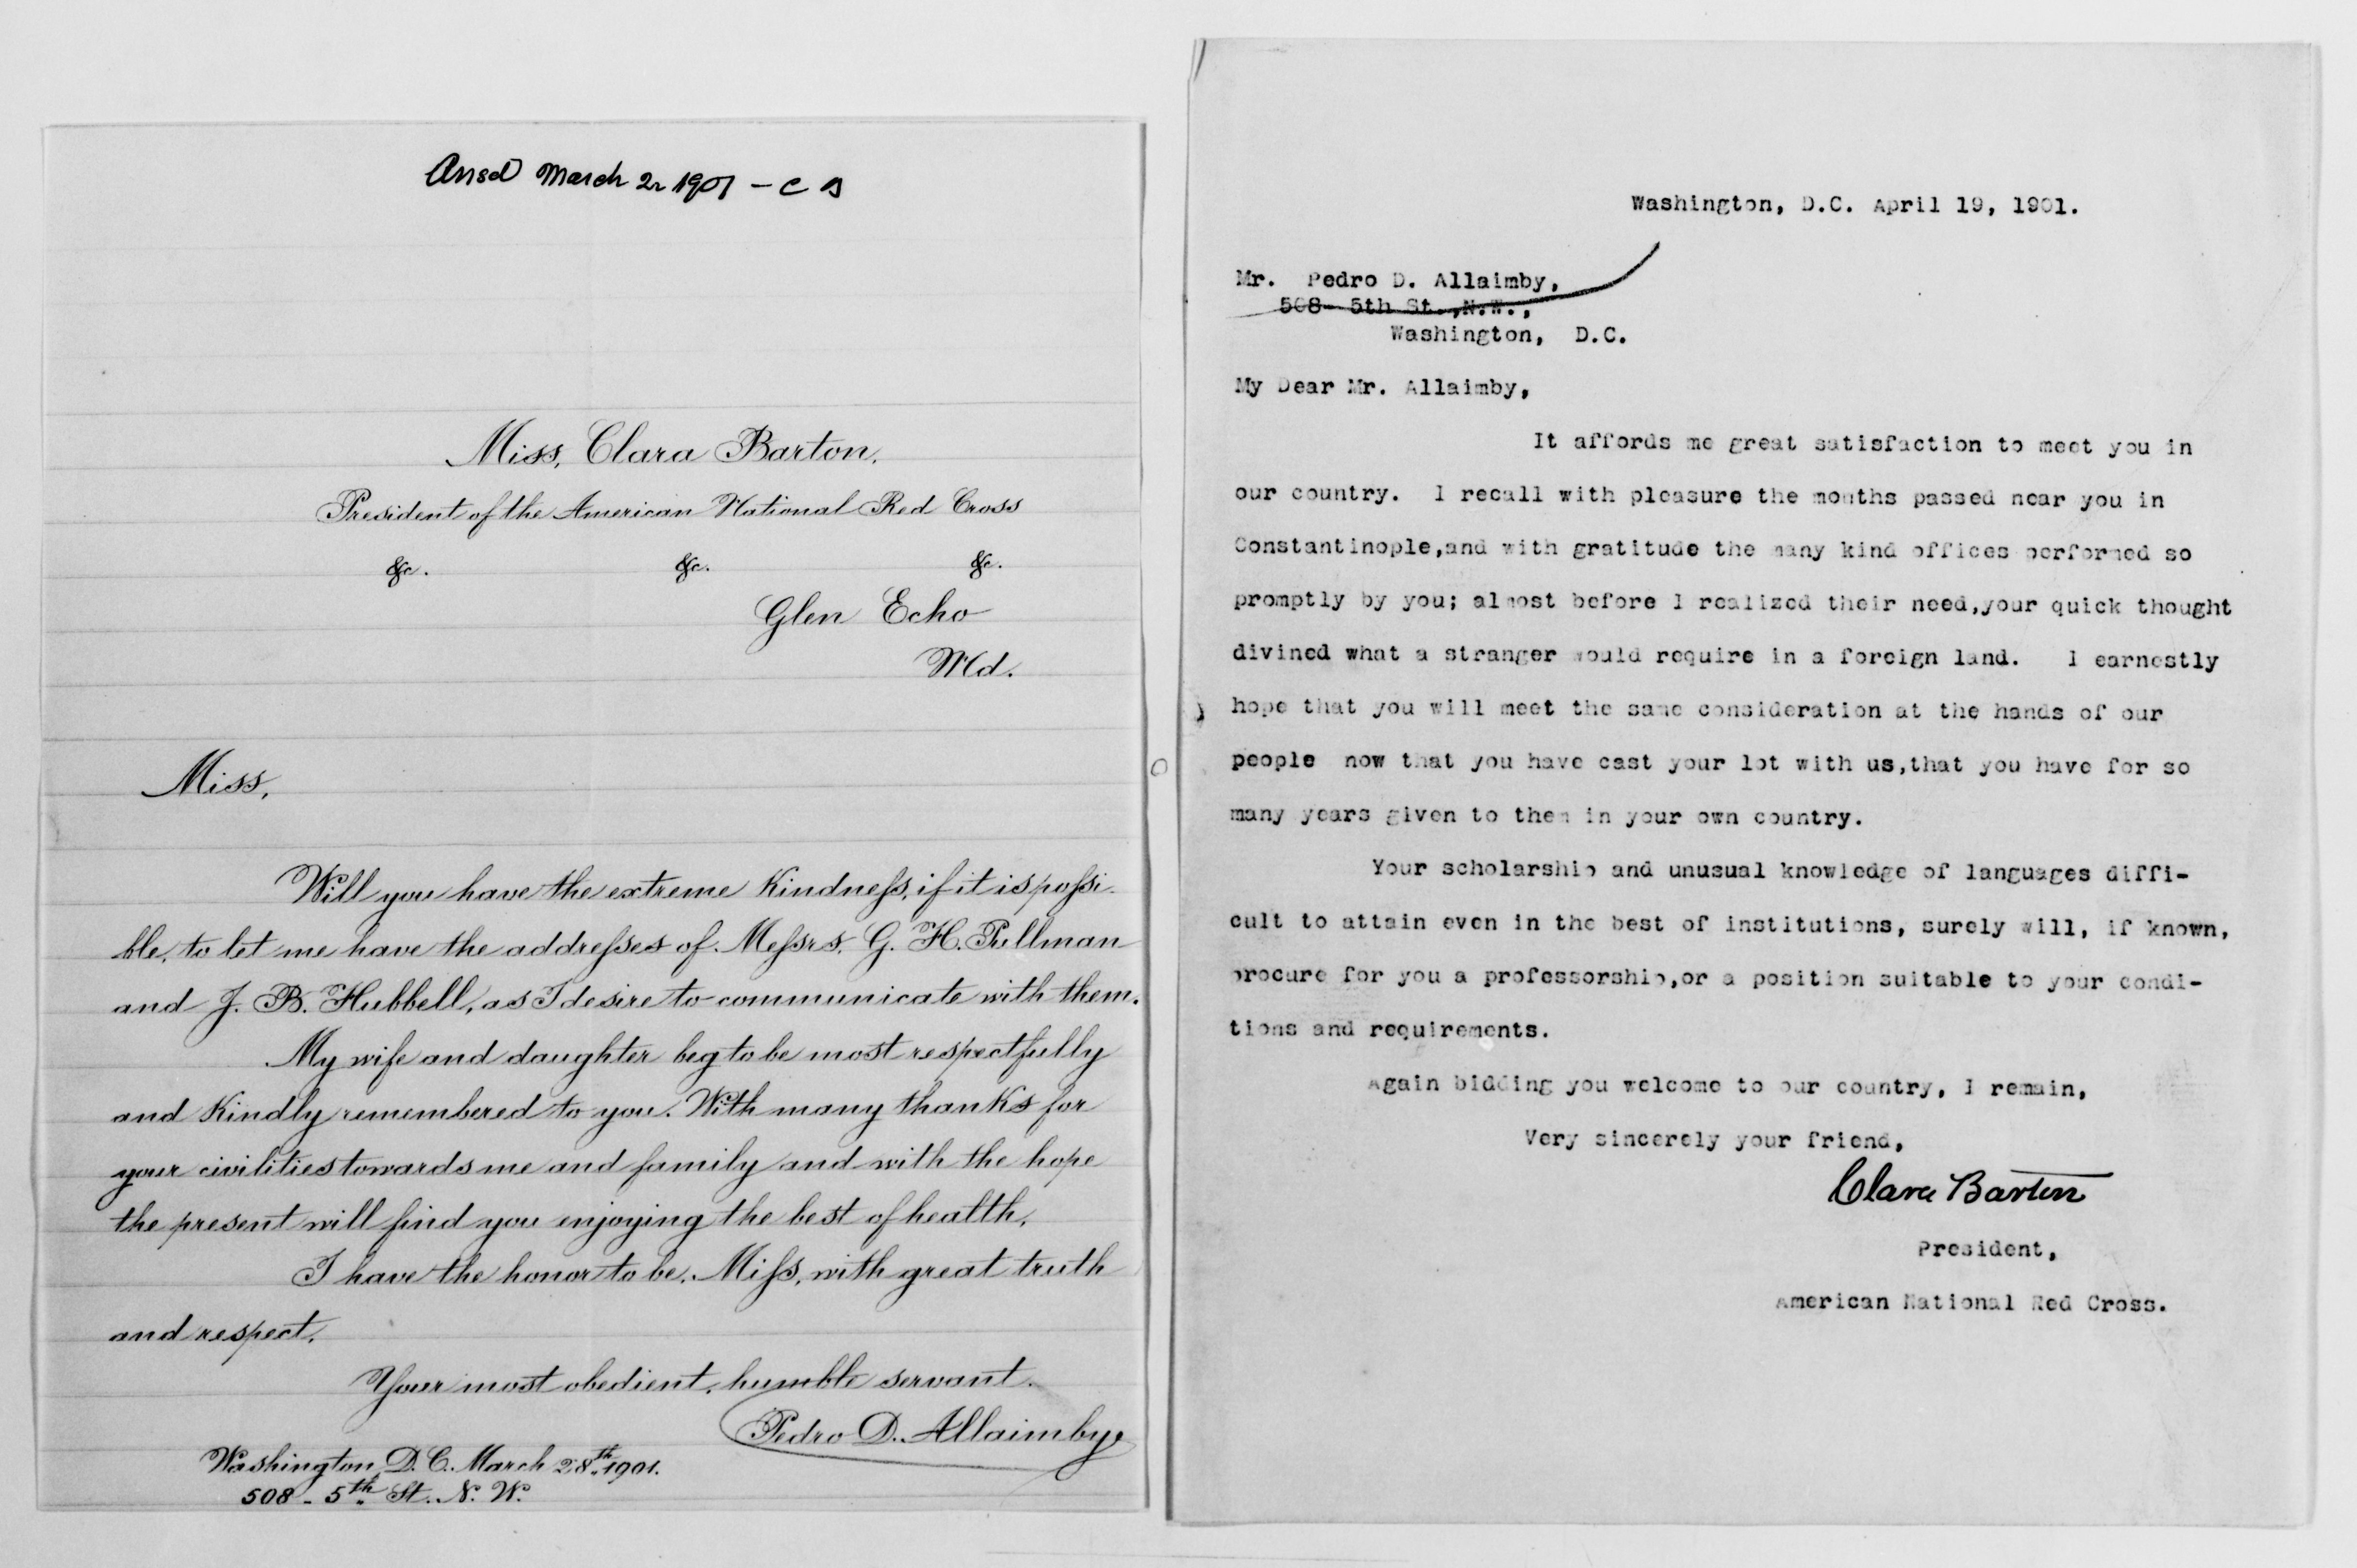 Ansd March 2 1901 - C B
Miss, Clara Barton,
President of the American National Red Cross
&c. &c. &c.
Glen Echo
Md.
Miss,
Will you have the extreme Kindness, if it is possi-
ble, to let me have the addresses of Messrs. G. H. Pullman
and J. B. Hubbell, as I desire to communicate with them.
My wife and daughter beg to be most respectfully
and Kindly remembered to you. With many thanKs for
your civilities towards me and family and with the hope
the present will find you enjoying the best of health,
I have the honor to be, Miss, with great truth
and respect,
Your most obedient, humble servant.
Pedro D. Allaimby
Washington D. C. March 28th 1901.
508 - 5th St. N. W.
Washington, D.C. April 19, 1901.
Mr. Pedro D. Allaimby,
508 5th St.,N.W.,
Washington, D.C.
My Dear Mr. Allaimby,
It affords me great satisfaction to meet you in
our country. I recall with pleasure the months passed near you in
Constantinople,and with gratitude the many kind offices performed so
promptly by you; almost before I realized their need,your quick thought
divined what a stranger would require in a foreign land. I earnestly
hope that you will meet the same consideration at the hands of our
people now that you have cast your lot with us,that you have for so
many years given to them in your own country.
Your scholarship and unusual knowledge of languages diffi-
cult to attain even in the best of institutions, surely will, if known,
procure for you a professorship,or a position suitable to your condi-
tions and requirements.
Again bidding you welcome to our country, I remain,
Very sincerely your friend,
Clara Barton
President,
American National Red Cross.